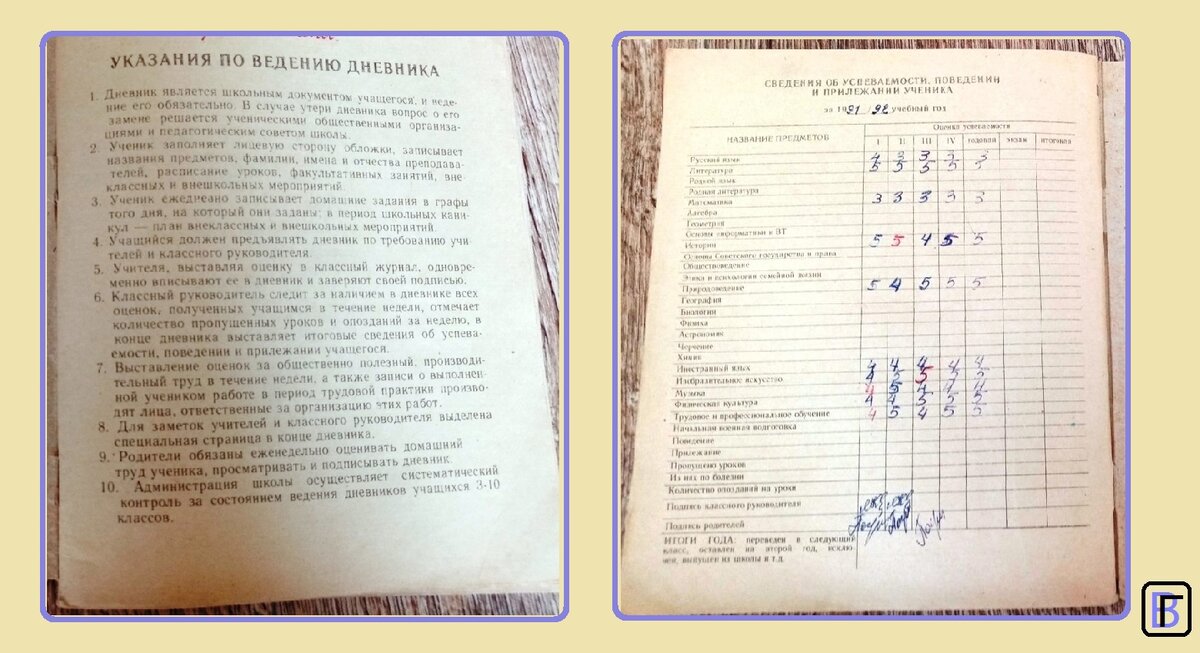 УКАЗАНИЯ ПО ВЕДЕНИЮ ДНЕВНИКА
1. Дневник является школьным документом учащегося, и веде-
ние его обязательно. В случае утери дневника вопрос о его
замене решается ученическими общественными организа-
циями и педагогическим советом школы.
2. Ученик заполняет лицевую сторону обложки, записывает
названия предметов, фамилии, имена и отчества преподава-
телей, расписание уроков, факультативных занятий, вне-
классных и внешкольных мероприятий.
3. Ученик ежедневно записывает домашние задания в графы
того дня, на который они заданы; в период школьных кани-
кул — план внеклассных и внешкольных мероприятий.
4. Учащийся должен предъявлять дневник по требованию учи-
телей и классного руководителя.
5. Учителя, выставляя оценку в классный журнал, одновре-
менно вписывают ее в дневник и заверяют своей подписью.
6. Классный руководитель следит за наличием в дневнике всех
оценок, полученных учащимся в течение недели, отмечает
количество пропущенных уроков и опозданий за неделю, в
конце дневника выставляет итоговые сведения об успева-
емости, поведении и прилежании учащегося.
7. Выставление оценок за общественно полезный, производи-
тельный труд в течение недели, а также записи о выполнен-
ной учеником работе в период трудовой практики произво-
дят лица, ответственные за организацию этих работ.
8. Для заметок учителей и классного руководителя выделена
специальная страница в конце дневника.
9. Родители обязаны еженедельно оценивать домашний
труд ученика, просматривать и подписывать дневник
10. Администрация школы осуществляет систематический
контроль за состоянием ведения дневников учащихся 3-10
классов.
СВЕДЕНИЯ ОБ УСПЕВАЕМОСТИ, ПОВЕДЕНИИ
И ПРИЛЕЖАНИИ УЧЕНИКА
за 1991/92 учебный год
НАЗВАНИЕ ПРЕДМЕТОВ
Оценка успеваемости
I II III IV годовая экзам итоговая
Русский язык 4 3 3 3 3
Литература 5 5 5 5 5
Родной язык
Родная литература
Математика 3 3 3 3 3
Алгебра
Геометрия
Основы информатики и ВТ
История 5 5 4 5 5
Основы Советского государства и права
Обществоведение
Этика и психология семейной жизни
Природоведение 5 4 5 5 5
География
Биология
Физика
Астрономия
Черчение
Химия
Иностранный язык 4 4 4 4 4
Изобразительное искусство
Музыка
Физическая культура 4 4 5 5 5
Трудовое и профессиональное обучение 4 5 4 5 5
Начальная военная подготовка
Поведение
Прилежание
Пропущено уроков
Из них по болезни
Количество опозданий на уроки
Подпись классного руководителя
Подпись родителей
ИТОГИ ГОДА: переведен в следующий
класс, оставлен на второй год, исклю-
чен, выпущен из школы и т.д.
ВГ